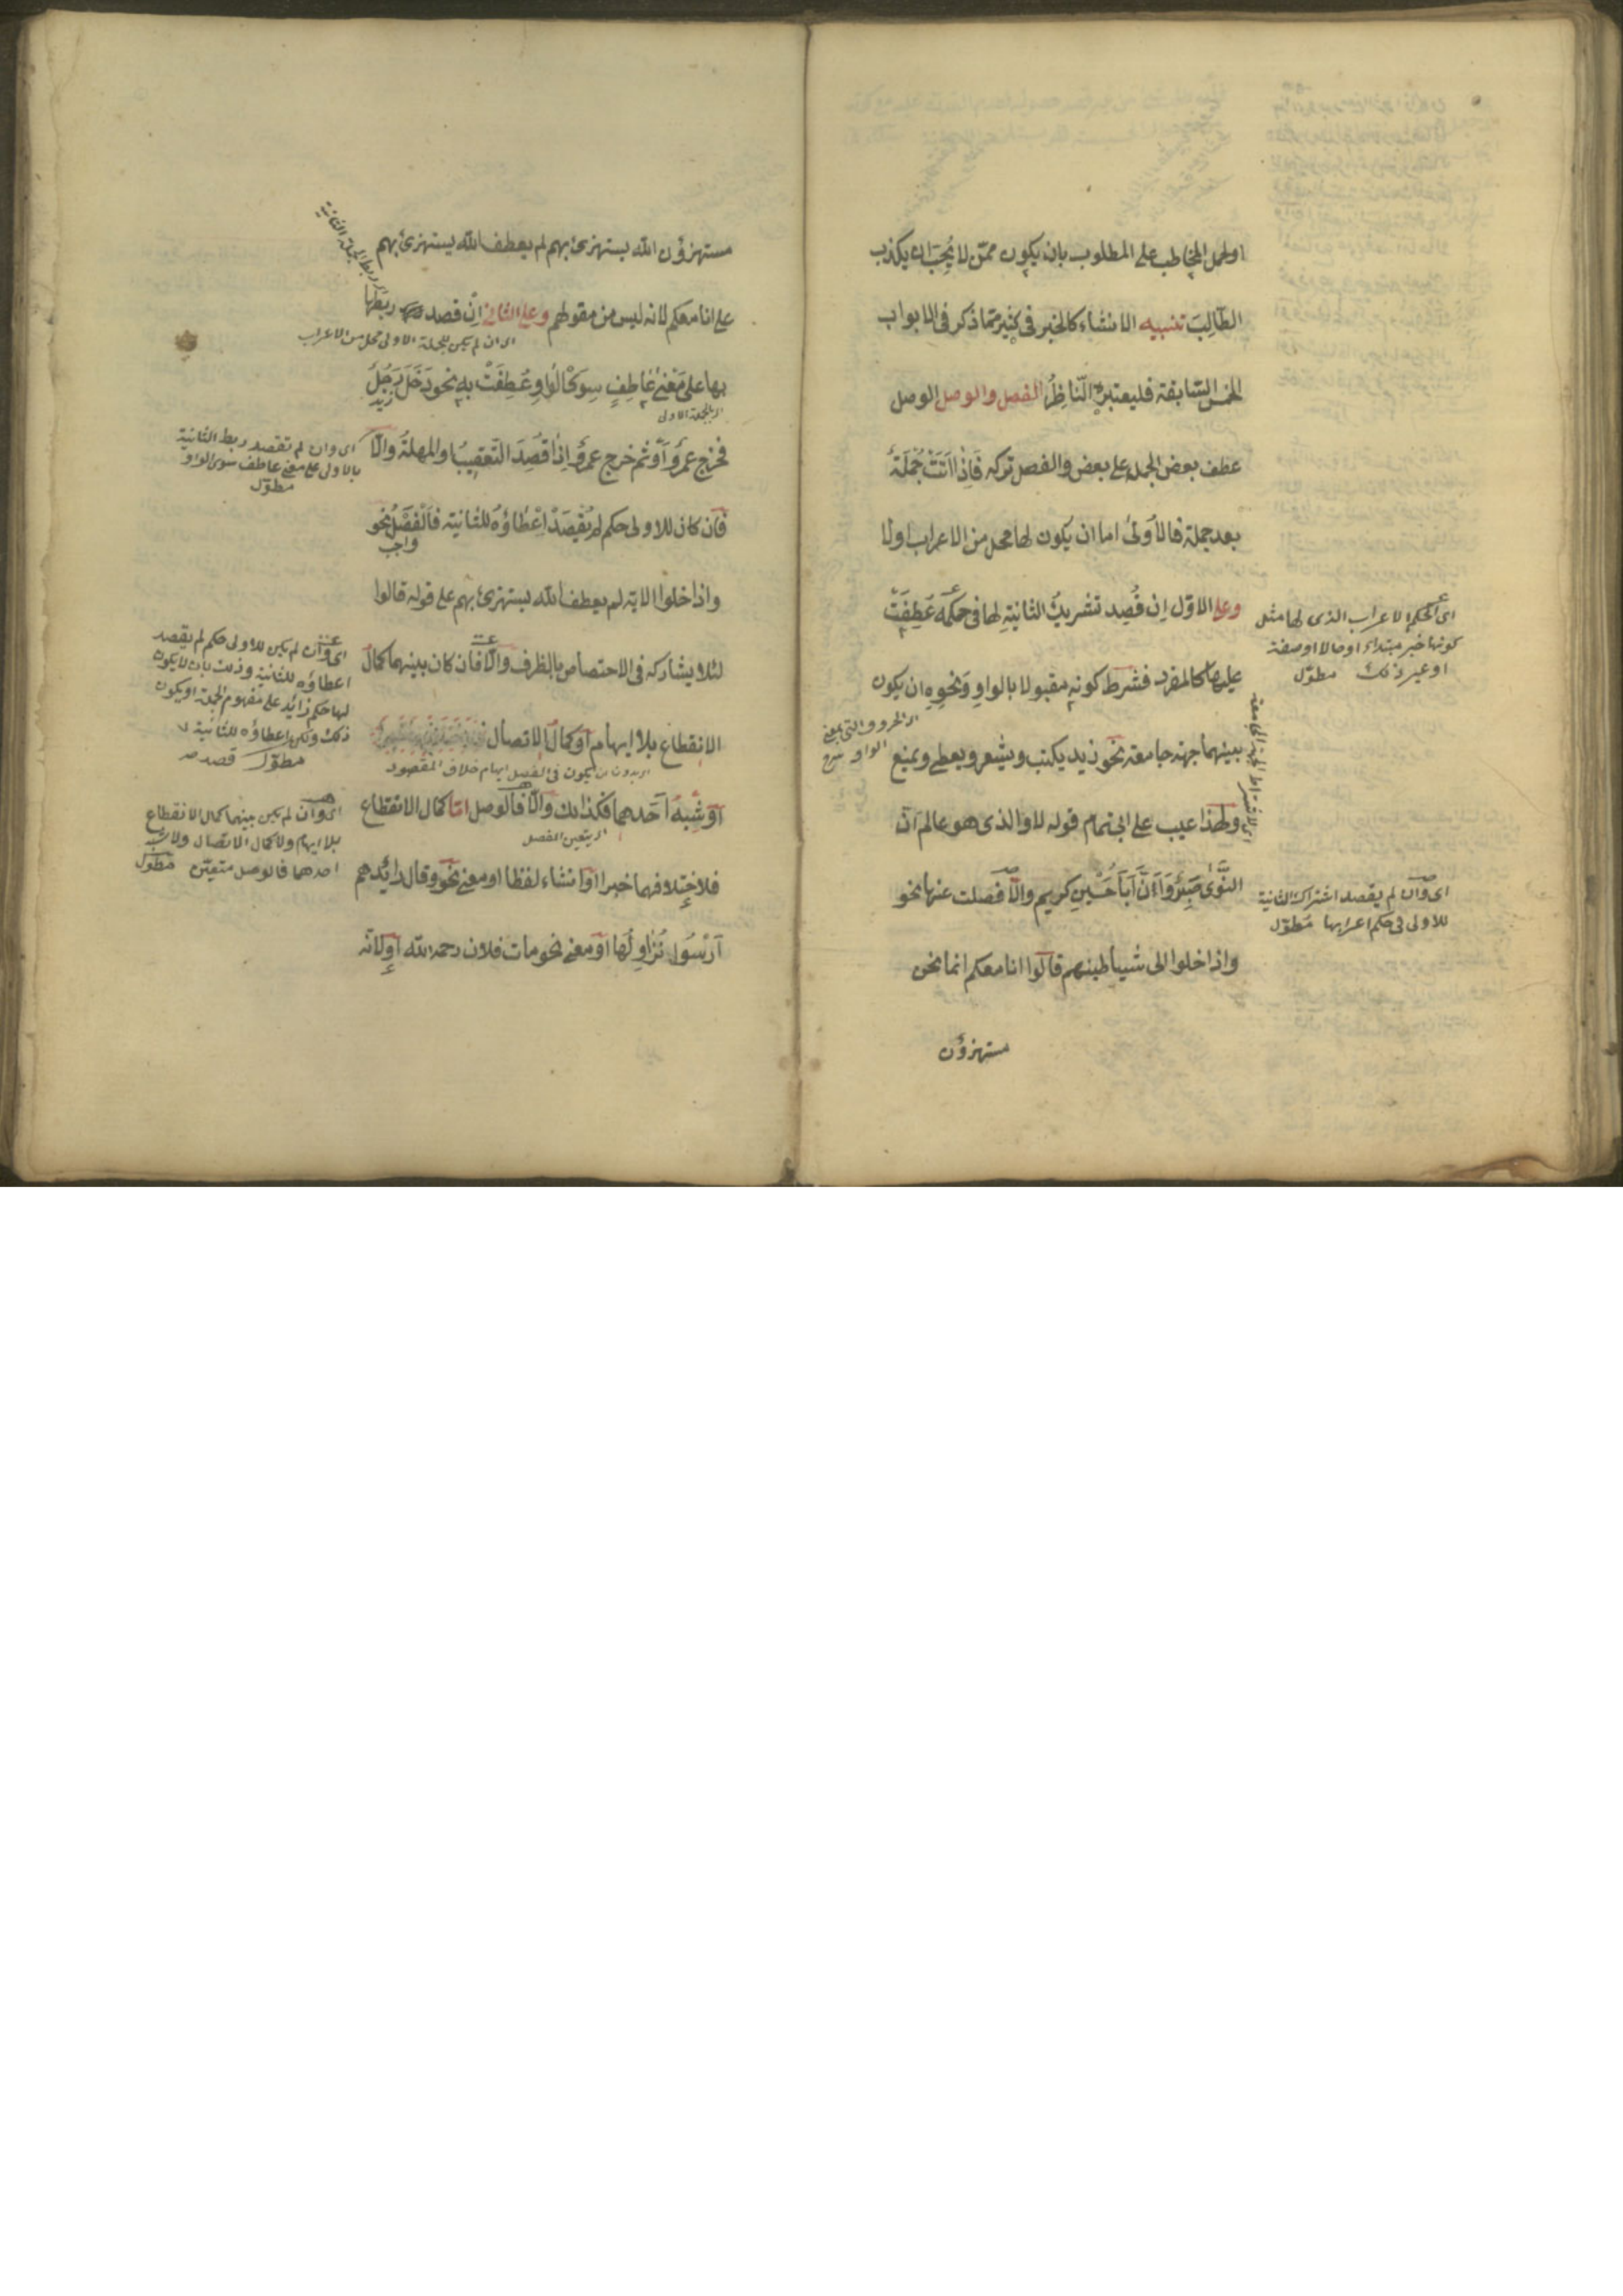 او لحمل المخاطب على المطلوب بان يكون ممن لا يحب ان يكذب
الطالب تنبيه الانشاء كالخبر فى كثير مما ذكر فى الابواب
الخمس السابقة فليعتبره الناظر الفصل والوصل الوصل
عطف بعض الجمل على بعض والفصل تركه فاذا اتت جملة
بعد جملة فالاولى اما ان يكون لها محل من الاعراب او لا
وعلى الاول ان قصد تشريك الثانية لها فى حكمه عطفت
عليها كالمفرد فشرط كونه مقبولا بالواو ونحوه ان يكون
بينهما جهة جامعة نحو زيد يكتب ويشعر ويعطى ويمنع
ولهذا عيب على ابى تمام قوله لا والذى هو عالم ان
النوى صبر وان ابا حسين كريم والا فصلت عنها نحو
واذا خلوا الى شياطينهم قالوا انا معكم انما نحن
مستهزؤن
اى الحكم الاعراب الذى لها مثل
كونها خبر مبتداء او حالا او صفة
او غير ذلك مطول
التى بمعنى
الواو
اى وان لم يقصد اشتراك الثانية
للاولى فى حكم اعرابها مطول
مستهزؤن الله يستهزئ بهم لم يعطف الله يستهزئ بهم
على انا معكم لانه ليس من مقولهم وعلى الثانى ان قصد ربطها
اى ان لم يكن للجملة الاولى محل من الاعراب
بها على معنى عاطف سوى الواو عطفت به نحو دخل زيد
اى بالجملة الاولى
فخرج عمرو او ثم خرج عمرو اذا قصد التعقيب او المهلة والا
فان كان للاولى حكم لم يقصد اعطاؤه للثانية فالفصل نحو
واجب
واذا خلوا الاية لم يعطف الله يستهزئ بهم على قوله قالوا
لئلا يشاركه فى الاختصاص بالظرف والا فان كان بينهما كمال
الانقطاع بلا ايهام او كمال الاتصال
يكون فى الفصل ايهام خلاف المقصود
او شبه احدهما فكذلك والا فالوصل اما كمال الانقطاع
اى يتعين الفصل
فلاختلافهما خبرا او انشاء لفظا او معنى نحو وقال رائدهم
ارسوا نزاولها او معنى نحو مات فلان رحمه الله او لانه
اى وان لم تقصد ربط الثانية
بالاولى على معنى عاطف سوى الواو
مطول
اى وان لم يكن للاولى حكم لم يقصد
اعطاؤه للثانية وذلك بان لا يكون
لها حكم زائد على مفهوم الجملة او يكون
ذلك ولكن اعطاؤه للثانية
مطول قصد
اى وان لم يكن بينهما كمال الانقطاع
بلا ايهام ولا كمال الاتصال ولا شبه
احدهما فالوصل متعين مطول